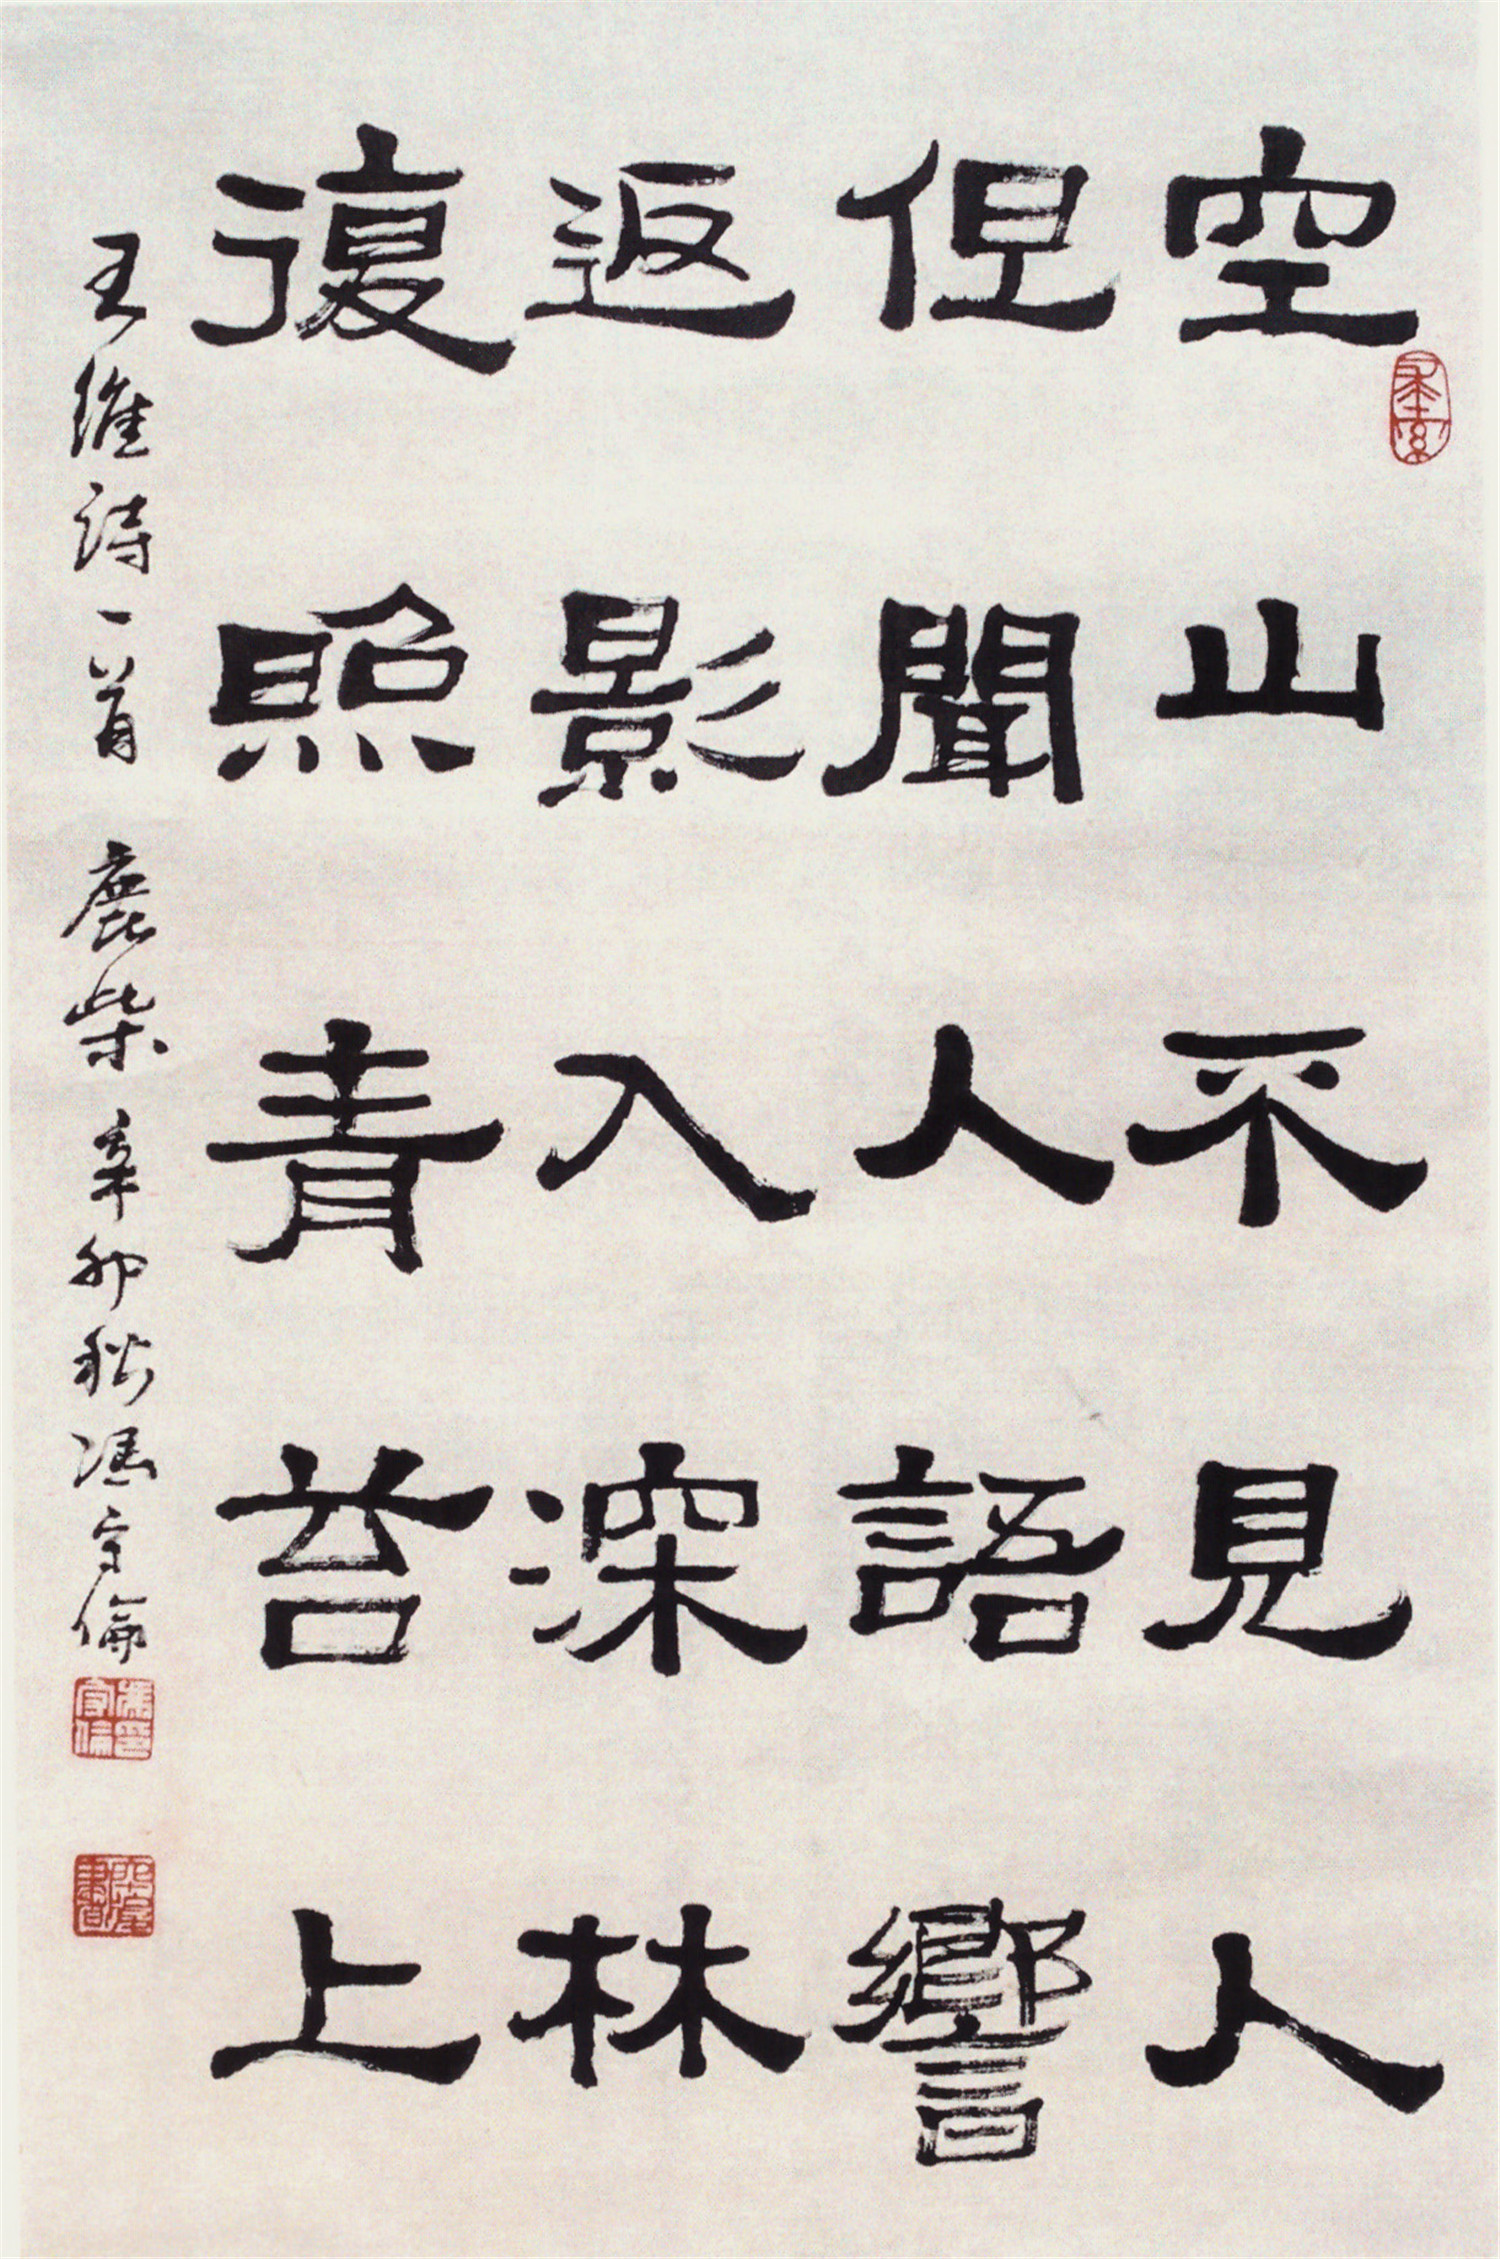 空山不見人
但聞人語響
返影入深林
復照青苔上
王維詩一首 鹿柴 辛卯秋馮守倫